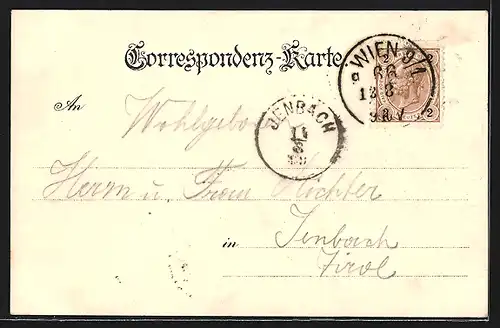 Correspondenz-Karte.
WIEN 9/1
JENBACH
An Wohlgeboren
Herrn u. Frau Richter
in Jenbach
Tirol